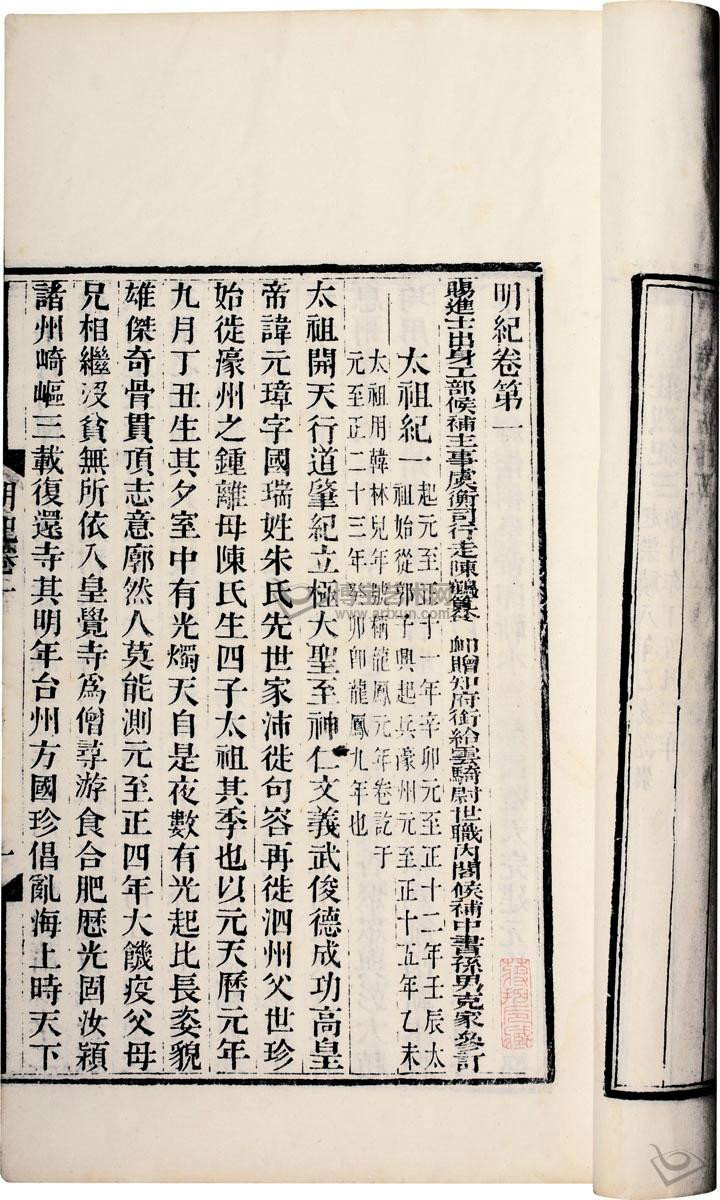 明紀卷第一
賜進士出身工部候補主事虞衡司行走陳鶴纂 卹贈知府銜給雲騎尉世職內閣候補中書孫男克家參訂
太祖紀一 起元至正十一年辛卯元至正十二年壬辰太
祖始從郭子興起兵濠州元至正十五年乙未
太祖用韓林兒年號稱龍鳳元年卷訖于
元至正二十三年癸卯卽龍鳳九年也
太祖開天行道肇紀立極大聖至神仁文義武俊德成功高皇
帝諱元璋字國瑞姓朱氏先世家沛徙句容再徙泗州父世珍
始徙濠州之鍾離母陳氏生四子太祖其季也以元天曆元年
九月丁丑生其夕室中有光燭天自是夜數有光起比長姿貌
雄傑奇骨貫頂志意廓然人莫能測元至正四年大饑疫父母
兄相繼沒貧無所依入皇覺寺爲僧尋游食合肥歷光固汝潁
諸州崎嶇三載復還寺其明年台州方國珍倡亂海上時天下
明紀卷一
一
博宝艺术网
www.artxun.com